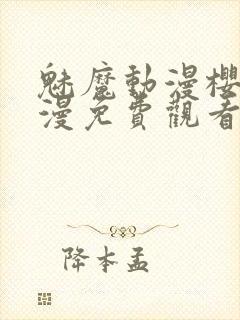 魅魔動漫櫻
漫免費觀看
降本孟